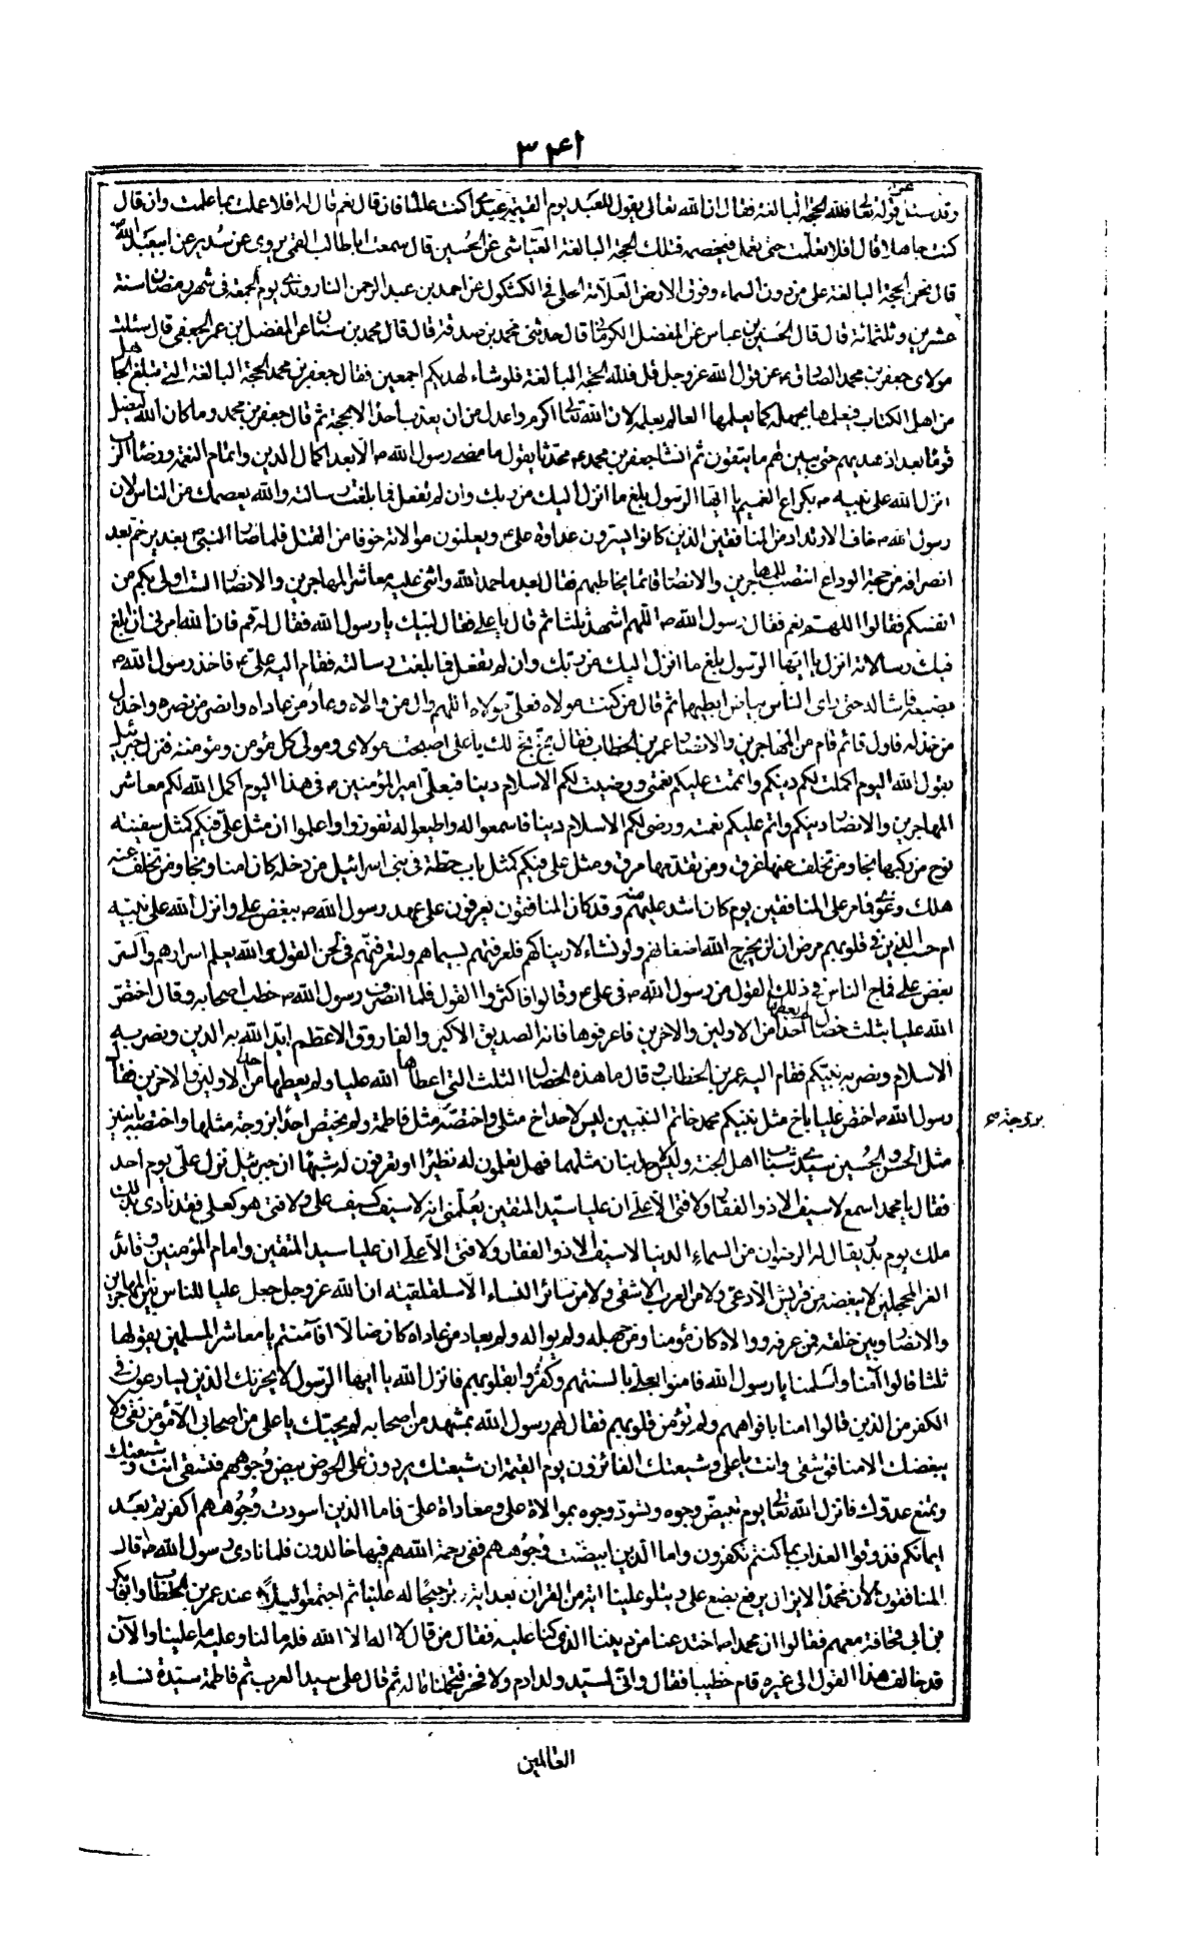 ٣٤١
وقد سئل عن قوله تعالى فلله الحجة البالغة فقال ان الله تعالى يقول للعبد يوم القيمة عبدي اكنت عالما فان قال نعم قال له افلا عملت بما علمت وان قال
كنت جاهلا قال افلا تعلمت حتى تعمل فيخصمه فتلك الحجة البالغة العياشى عن الحسين قال سمعت ابا طالب القمى يروى عن سدير عن ابيعبد الله
قال نحن الحجة البالغة على من دون السماء وفوق الارض العلامة الحلى في الكشكول عن احمد بن عبد الرحمن الناروندى يوم الجمعة في شهر رمضان سنة
عشرين وثلثمائة قال قال الحسين بن عباس عن المفضل الكرمانى قال حدثنى محمد بن صدقة قال قال محمد بن سنان عن المفضل بن عمر الجعفى قال سئلت
مولاى جعفر بن محمد الصادق ع عن قول الله عز وجل قل فلله الحجة البالغة فلو شاء لهديكم اجمعين فقال جعفر بن محمد الحجة البالغة التى تبلغ الجاهل
من اهل الكتاب فيعلمها بجهله كما يعلمها العالم بعلمه لان الله تعالى اكرم واعدل من ان يعذب احدا الا بحجة ثم قال جعفر بن محمد وما كان الله ليضل
قوما بعد اذ هديهم حتى يبين لهم ما يتقون ثم انشا جعفر بن محمد ع محدثا يقول ما مضى رسول الله ص الا بعد اكمال الدين واتمام النعمة ورضاء الرب
انزل الله على نبيه ص بكراع الغميم يا ايها الرسول بلغ ما انزل اليك من ربك وان لم تفعل فما بلغت رسالته والله يعصمك من الناس لان
رسول الله ص خاف الارتداد من المنافقين الذين كانوا يسترون عداوة على ع ويعلنون موالاته خوفا من القتل فلما صار النبى ص بغدير خم بعد
انصرافه من حجة الوداع انتصب للمهاجرين والانصار قائما يخاطبهم فقال بعد ما حمد الله واثنى عليه معاشر المهاجرين والانصار الست اولى بكم من
انفسكم فقالوا اللهم نعم فقال رسول الله ص اللهم اشهد ثلثا ثم قال يا على فقال لبيك يا رسول الله فقال له قم فان الله امرنى ان ابلغ
فيك رسالاته انزل يا ايها الرسول بلغ ما انزل اليك من ربك وان لم تفعل فما بلغت رسالته فقام اليه على ع فاخذ رسول الله ص
بضبعه فاشاله حتى راى الناس بياض ابطيهما ثم قال من كنت مولاه فعلى مولاه اللهم وال من والاه وعاد من عاداه وانصر من نصره واخذل
من خذله فاول قائم قام من المهاجرين والانصار عمر بن الخطاب فقال بخ بخ لك يا على اصبحت مولاى ومولى كل مؤمن ومؤمنة فنزل جبرئيل
بقول الله اليوم اكملت لكم دينكم واتممت عليكم نعمتى ورضيت لكم الاسلام دينا فبعلى امير المؤمنين ع في هذا اليوم اكمل الله لكم معاشر
المهاجرين والانصار دينكم واتم عليكم نعمته ورضى لكم الاسلام دينا فاسمعوا له واطيعوا له تفوزوا واعلموا ان مثل على فيكم كمثل سفينة
نوح من ركبها نجا ومن تخلف عنها غرق ومن تقدمها مرق ومثل على فيكم كمثل باب حطة فى بنى اسرائيل من دخله كان امنا ونجا ومن تخلف عنه
هلك وغوى فما مر على المنافقين يوم كان اشد عليهم منه وقد كان المنافقون يعرفون على عهد رسول الله ص ببغض على وانزل الله على نبيه
ام حسب الذين فى قلوبهم مرض ان لن يخرج الله اضغانهم ولو نشاء لاريناكهم فلعرفتهم بسيماهم ولتعرفنهم فى لحن القول والله يعلم اسرارهم والستر
بغض على فماج الناس فى ذلك القول من رسول الله ص فى على ع وقالوا فاكثروا القول فلما انصرف رسول الله ص خطب اصحابه وقال اختص
الله عليا بثلث خصال لم يعطها احدا من الاولين والاخرين فاعرفوها فانه الصديق الاكبر والفاروق الاعظم ايد الله به الدين ونصر به
الاسلام ونصر به نبيكم فقام اليه عمر بن الخطاب وقال ما هذه الخصال الثلث التى اعطاها الله عليا ولم يعطها احدا من الاولين والاخرين فقال
رسول الله ص اختص عليا باخ مثل نبيكم محمد خاتم النبيين ليس لاحد اخ مثلى واختصه مثل فاطمة ولم يختص احدا بزوجة مثلها واختصه بابنين
بزوجة ص
مثل الحسن والحسين سيدى شباب اهل الجنة وليس لاحد ابنان مثلهما فهل تعلمون له نظيرا او تعرفون له شبها ان جبرئيل نزل على يوم احد
فقال يا محمد اسمع لا سيف الا ذو الفقار ولا فتى الا على ان عليا سيد المتقين يعلمنى انه لا سيف كسيف على ولا فتى هو كعلى فقد نادى بذلك
ملك يوم بدر يقال له الرضوان من السماء الدنيا لا سيف الا ذو الفقار ولا فتى الا على ان عليا سيد المتقين وامام المؤمنين وقائد
الغر المحجلين لا يبغضه من قريش الا دعى ولا من العرب الا شقى ولا من سائر النساء الا سلقلقية ان الله عز وجل جعل عليا للناس بين المهاجرين
والانصار وبين خلقه فمن عرفه ووالاه كان مؤمنا ومن جهله ولم يواله ولم يعاد من عاداه كان ضالا افآمنتم يا معاشر المسلمين يقولها
ثلثا قالوا آمنا وسلمنا يا رسول الله فامنوا بعلى بالسنتهم وكفروا بقلوبهم فانزل الله يا ايها الرسول لا يحزنك الذين يسارعون فى
الكفر من الذين قالوا امنا بافواههم ولم تؤمن قلوبهم فقال لهم رسول الله بمشهد من اصحابه لم يحبك يا على من اصحابى الا مؤمن تقى ولا
يبغضك الا منافق شقى وانت يا على وشيعتك الفائزون يوم القيمة ان شيعتك يردون على الحوض بيض وجوههم فتسقى انت وشيعتك
وتمنع عدوك فانزل الله تعالى يوم تبيض وجوه وتسود وجوه بموالاة على ومعاداة على فاما الذين اسودت وجوههم اكفرتم بعد
ايمانكم فذوقوا العذاب بما كنتم تكفرون واما الذين ابيضت وجوههم ففى رحمة الله هم فيها خالدون فلما نادى رسول الله ص قال
المنافقون الا ان محمدا لا يزال يرفع بضبع على ويتلو علينا اية من القران بعد اية ترجيحا له علينا ثم اجتمعوا ليلا عند عمر بن الخطاب وابى بكر
بن ابى قحافة معهم فقالوا ان محمدا ص اختدعنا من ديننا الذى كنا عليه فقال من قال لا اله الا الله فله ما لنا وعليه ما علينا والآن
قد خالف هذا القول الى غيره قام خطيبا فقال وانى سيد ولد ادم ولا فخر فتحملنا له ثم قال على سيد العرب ثم فاطمة سيدة نساء
العالمين